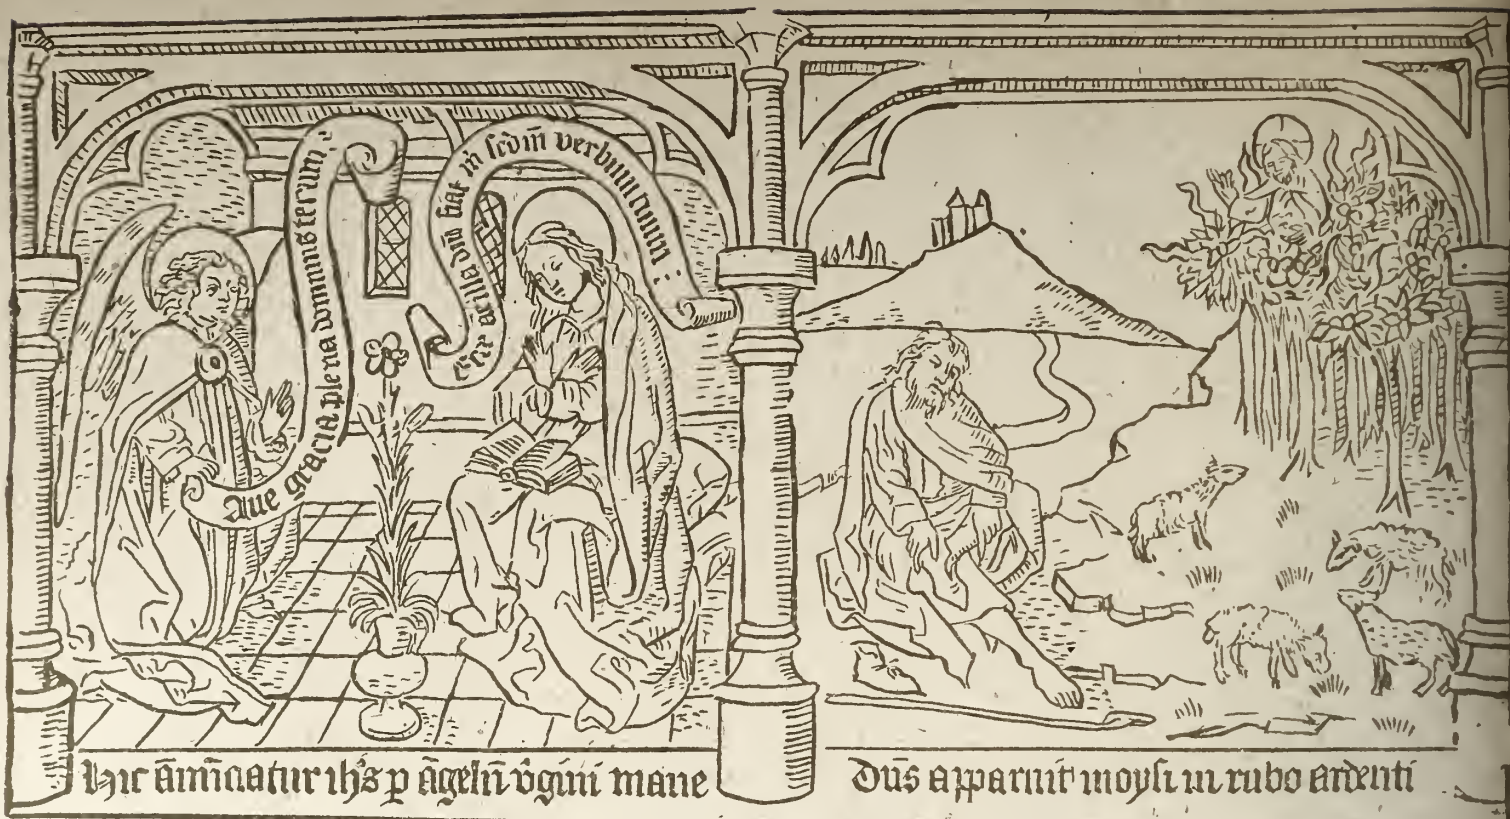 Aue gracia plena dominus tecum :
ecce ācilla dn̄i fiat m̄ scdm̄ verbum tuum :
Hic ānūciatur ih's p āgelū v̄gini marie
Dn̄s apparuit moysi in rubo ardenti